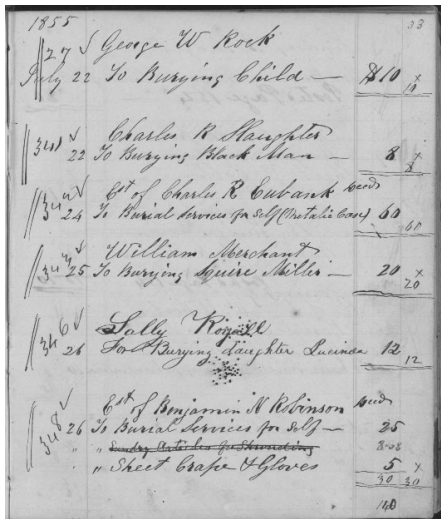 1855 33
27 George W Rock
July 22 To Burying Child — $10 x
10
341 Charles R Slaughter
22 To Burying Black Man — 8 x
8
342 Est of Charles R Eubank Decd
24 To Burial Services for Self (Metalic Case) 60
60
343 William Merchant
25 To Burying Squire Miller — 20 x
20
346 Sally Royall
26 For Burying daughter Lucinda 12
12
348 Est of Benjamin N Robinson Decd
26 To Burial Services for Self — 25
" Sundry Articles for Shrouding
" Sheet Crape & Gloves 5 x
30 30
140